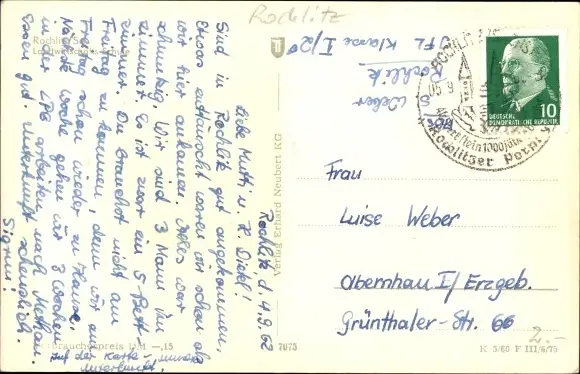 Rochlitz
Rochlitz Sa.
Landwirtschafts-Schule
Rochlitz d. 4.9.62
Liebe Mutti u. K. Diehl!
Sind in Rochlitz gut angekommen.
Etwas enttäuscht waren wir schon als
wir hier ankamen. Alles war
schmutzig. Wir sind 3 Mann im
Zimmer. Es ist zwar ein 5 Bett
zimmer. Du brauchst nicht am
Freitag zu kommen, denn wir
Freitag schon wieder zu Hause.
Nächste Woche gehen wir 3 Wochen
in der LPG arbeiten nach Methau.
Essen gut. Unterkunft scheußlich.
Sigrun!
Auf der Karte - unsere
Unterkunft.
Verbraucherpreis DM —.15
7075
Verlag Erhard Neubert KG
S. Weber
Rochlitz
IfL Klasse I/2
ROCHLITZ
05.9
1000 Jahre
Rochlitzer Porphyr
10
DEUTSCHE
DEMOKRATISCHE REPUBLIK
Frau
Luise Weber
Olbernhau I/Erzgeb.
Grünthaler-Str. 66
2.-
K 5/68 F III/6/75